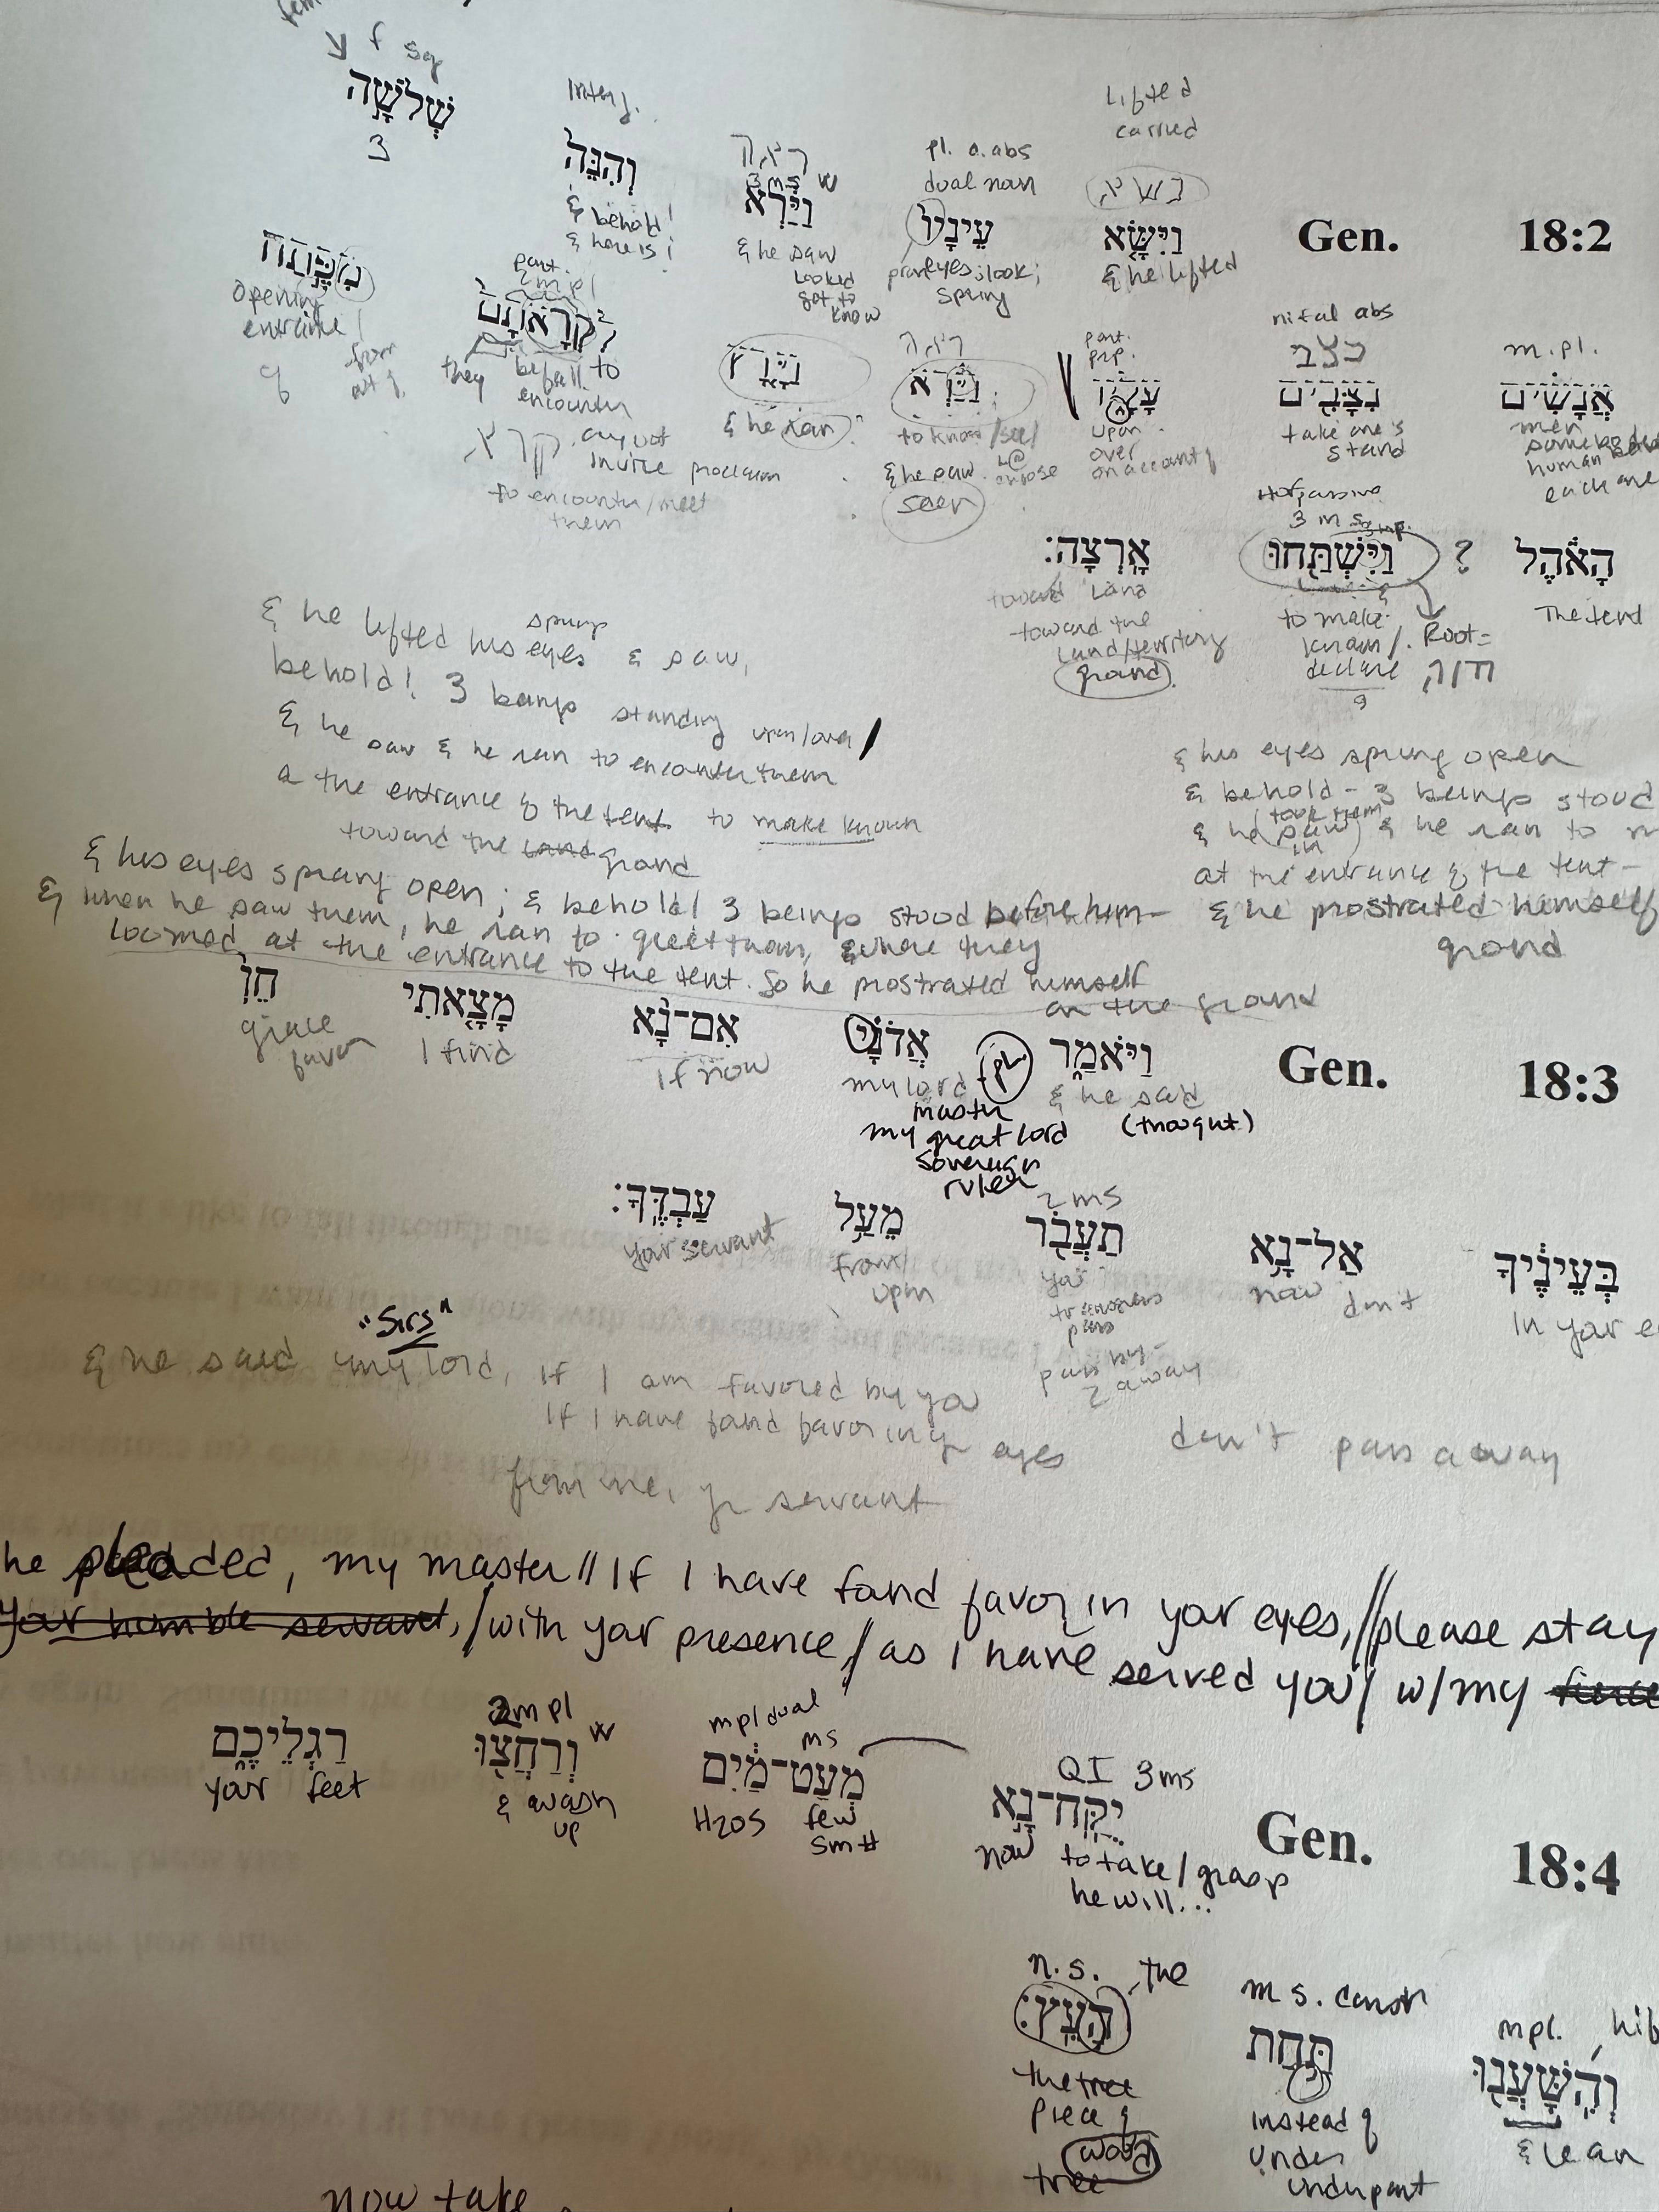 f sg
שְׁלֹשָׁה
3
Interj.
וְהִנֵּה
& behold!
& here is!
ראה
3 ms W
וַיַּרְא
& he saw
looked
got to
know
pl. abs
dual noun
עֵינָיו
eyes; look;
spring
Lifted
carried
נשא
וַיִּשָּׂא
& he lifted
Gen. 18:2
מִפֶּתַח
opening
entrance
from
out of
part.
3 m pl
לִקְרָאתָם
they befall to
encounter
קרא
cry out
invite proclaim
to encounter/meet
them
וַיָּרָץ
& he ran
ראה
וַיַּרְא
to know/see/
choose
& he saw
seen
part.
prp.
עָלָיו
upon
over
on account of
nifal abs
נצב
נִצָּבִים
take one's
stand
m. pl.
אֲנָשִׁים
men
somebodies
human
each one
אָרְצָה׃
toward land
toward the
land/territory
ground
3 m s
וַיִּשְׁתַּחוּ ?
to make
known/
declare
Root=
חוה
הָאֹהֶל
The tent
& he lifted his eyes & saw,
sprung
behold! 3 beings standing upon/over/
& he saw & he ran to encounter them
a the entrance of the tent to make known
toward the land ground
& his eyes sprung open
& behold - 3 beings stood
& he (saw) & he ran to
took them in
at the entrance of the tent-
& he prostrated himself
ground
& his eyes sprang open; & behold! 3 beings stood before him-
& when he saw them, he ran to greet them, where they
loomed at the entrance to the tent. So he prostrated himself
on the ground
חֵן
grace
favor
מָצָאתִי
I find
אִם־נָא
if now
אֲדֹנָי
my lord - pl
master
my great lord
sovereign
ruler
וַיֹּאמַר
& he said
(thought)
Gen. 18:3
עַבְדֶּךָ׃
your servant
מֵעַל
from/
upon
2 ms
תַעֲבֹר
you
transgress
pass
pass by-
away
אַל־נָא
now don't
בְּעֵינֶיךָ
In your
"Sirs"
& he said my lord, if I am favored by you
If I have found favor in yr eyes
don't pass away
from me, yr servant
he pleaded, my master // If I have found favor in your eyes, // please stay
Your humble servant, / with your presence, / as I have served you / w/ my
רַגְלֵיכֶם
your feet
2m pl W
וְרַחֲצוּ
& wash
up
m pl dual
ms
מְעַט־מַיִם
H2Os few
sm #
QI 3ms
יֻקַּח־נָא
now to take/grasp
he will...
Gen. 18:4
n. s. the
הָעֵץ׃
the tree
piece of
wood
tree
m s. const
תַּחַת
instead of
under
underpart
mpl. hif
וְהִשָּׁעֲנוּ
& lean
now take